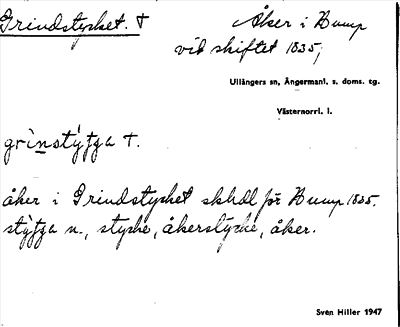 Grindstycket. †
Åker i Hump
vid skiftet 1835;
Ullångers sn, Ångermanl. s. doms. tg.
Västernorrl. l.
grìnstýʃʃa †.
åker i Grindstycket skhdl för Hump 1835.
stýʃʃa n., stycke, åkerstycke, åker.
Sven Hiller 1947